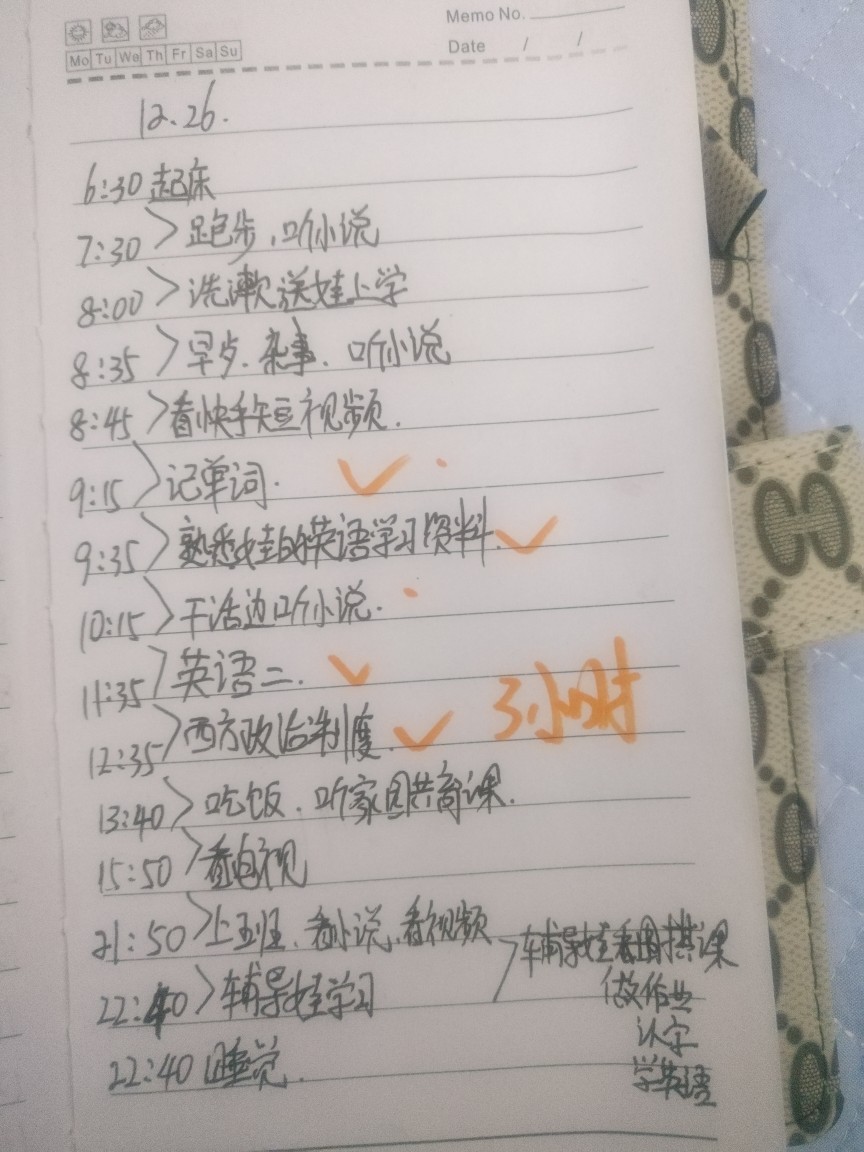 Memo No.
Mo Tu We Th Fr Sa Su
Date / /
12.26.
6:30 起床
7:30 >跑步、听小说
8:00 >洗漱送娃上学
8:35 >早步、杂事、听小说
8:45 >看快手短视频.
9:15 >记单词.
9:35 >熟悉娃的英语学习资料.
10:15 >干活边听小说.
11:35 >英语二.
3小时
12:35 >西方政治制度.
13:40 >吃饭、听家园共育课.
15:50 >看电视
21:50 >上班、看小说、看视频
22:40 >辅导娃学习
>辅导娃看图搭课
做作业
认字
学英语
22:40 睡觉.